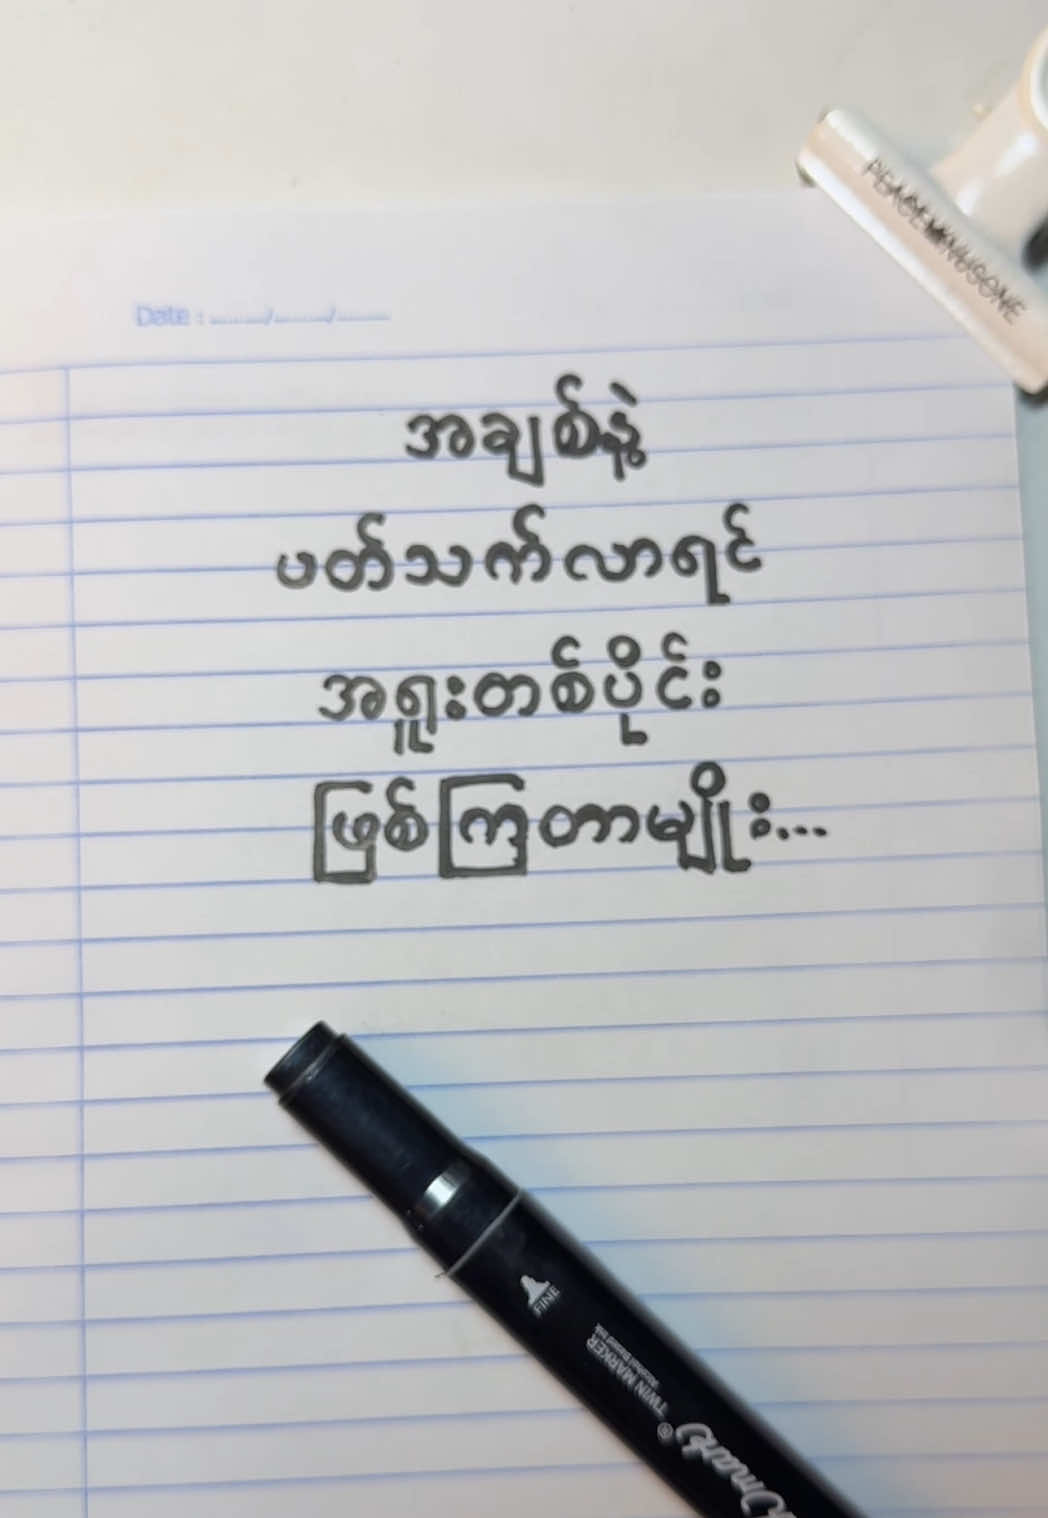 PEACEMINUSONE
Date : ......../......../........
အချစ်နဲ့
ပတ်သက်လာရင်
အရူးတစ်ပိုင်း
ဖြစ်ကြတာမျိုး...
FINE
TWIN MARKER
Alcohol Based Ink